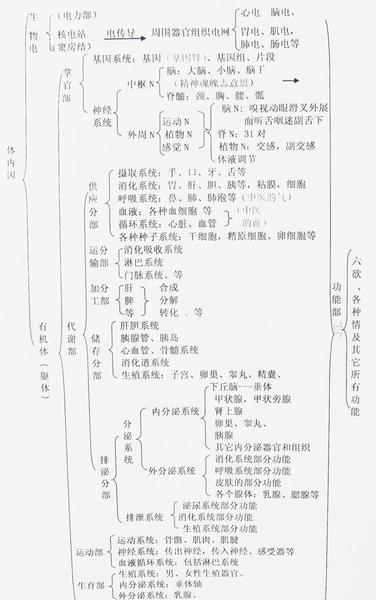 生物电
(电力部)
核电站
(窦房结)
电传导
周围器官组织电网
心电 脑电、
胃电、肌电，
肺电、肠电等
体内因
有机体（躯体）
掌官部
基因系统：基因（基因肾）、基因组、片段
神经系统
中枢N
脑：大脑、小脑、脑干
（精神魂魄志意思）
脊髓：颈、胸、腰、骶
外周N
运动N
植物N
感觉N
脑N：嗅视动眼滑叉外展
面听舌咽迷副舌下
脊N：31对
植物N：交感，副交感
体液调节
代谢部
供应分部
摄取系统：手、口、牙、舌等
消化系统：胃、肝、胆、胰等，粘膜，细胞
呼吸系统：鼻、肺、肺泡等（中医的气）
血液：各种血细胞等
循环系统：心脏、血管
（中医的血）
各种种子系统：干细胞，精原细胞、卵细胞等
运输分部
消化吸收系统
淋巴系统
门脉系统、等
加工分部
肝
脾
等
合成
分解
转化、等
储存分部
肝胆系统
胰腺管、胰岛
心血管、骨髓系统
消化道系统
生殖系统：子宫、卵巢、睾丸、精囊、
排泌分部
分泌系统
内分泌系统
下丘脑----垂体
甲状腺，甲状旁腺
肾上腺
卵巢、睾丸、
胰腺
其它内分泌器官和组织
外分泌系统
消化系统部分功能
呼吸系统部分功能
皮肤的部分功能
各个腺体：乳腺、腮腺等
排泄系统
泌尿系统部分功能
消化系统部分功能
生殖系统部分功能
运动部
运动系统：骨骼、肌肉、肌腱
神经系统：传出神经，传入神经、感受器等
血液循环系统：包括淋巴系统
生育部
生殖系统：男、女性生殖器官、
内分泌系统：垂体轴
外分泌系统：乳腺、
功能部
六欲、各种情及其它所有功能